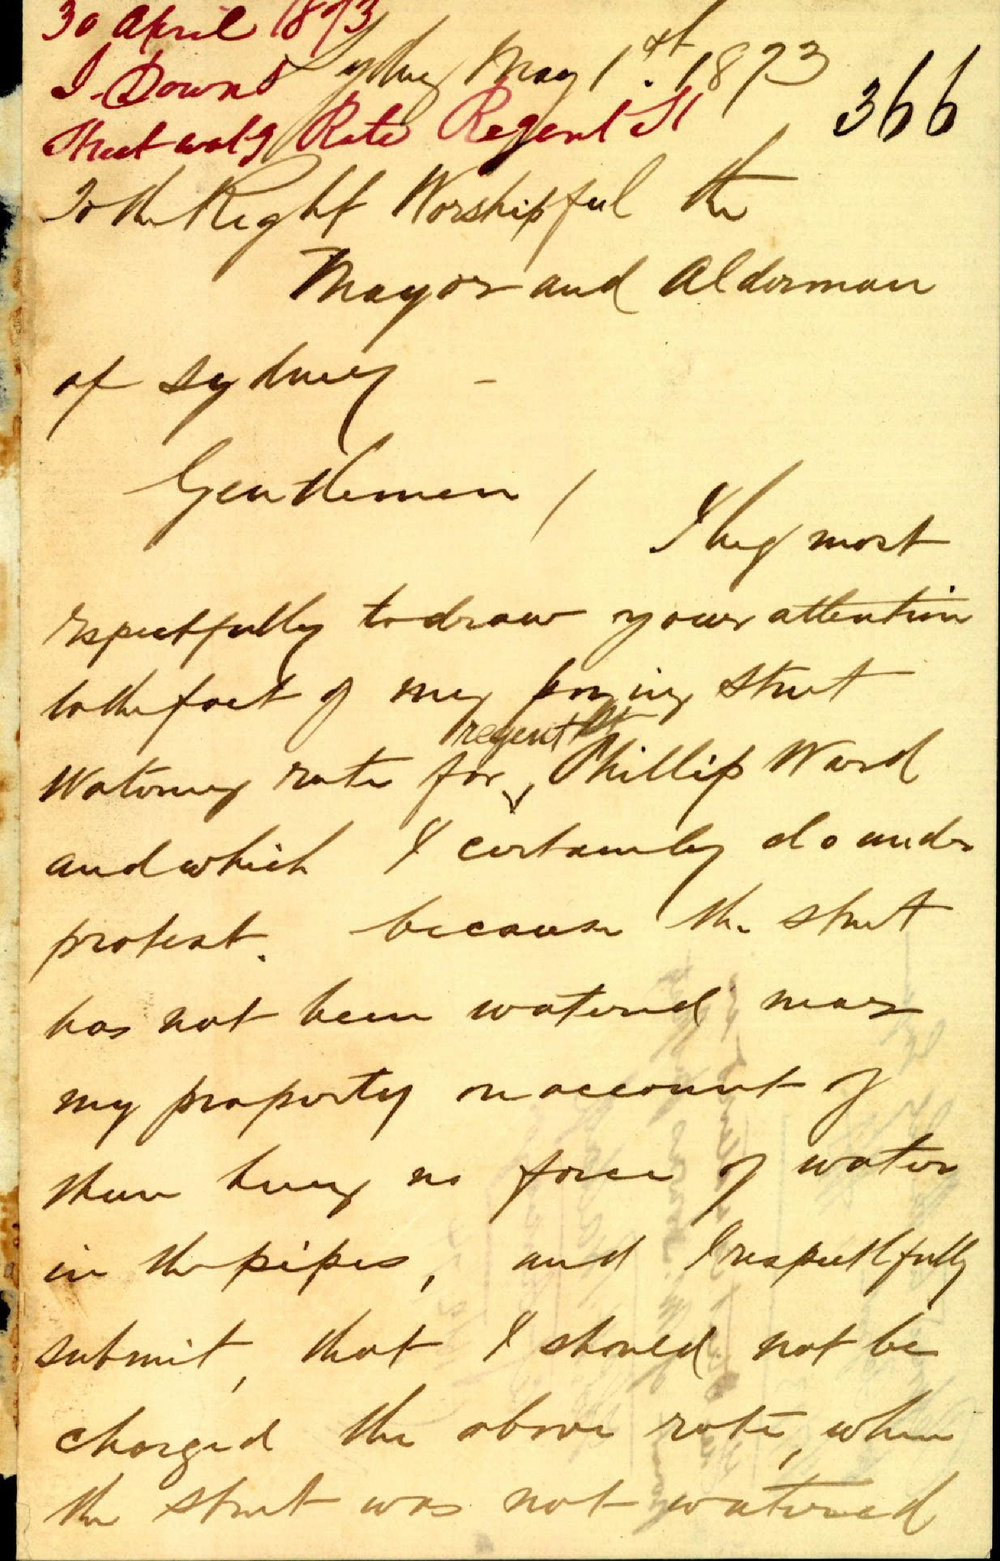 30 April 1873
J. Downs Sydney May 1st. 1873
Street watg Rate Regent St 366
To the Right Worshipful the
Mayor and Alderman
of Sydney -
Gentlemen /
I beg most
respectfully to draw your attention
to the fact of my paying Street
regent St
Watering rate for Phillip Ward
and which I certainly do under
protest. because the street
has not been watered near
my property on account of
there being no force of water
in the pipes, and I respectfully
submit, that I should not be
charged the above rate, when
the street was not watered